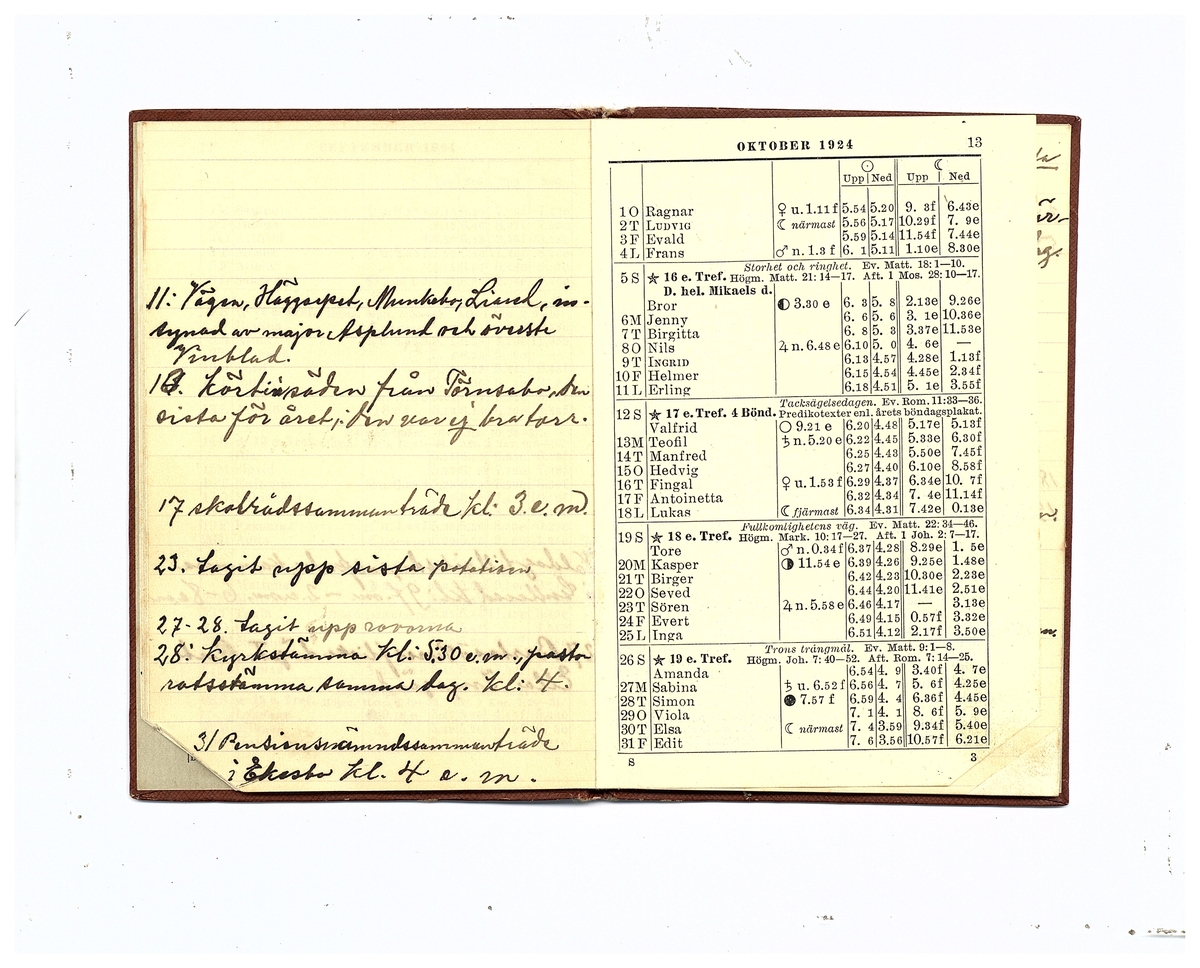 11: Vägen, Häggarpet, Munkebo, Liared, in-
synad av major Asplund och överste
Vinblad.
16. Kört in säden från Törnsabo, den
sista för året; den var ej bra torr.
17 skolrådssammanträde kl: 3 e. m.
23. Tagit upp sista potatisen
27-28. Tagit upp rovorna
28: Kyrkstämma kl: 5,30 e. m., pasto
ratsstämma samma dag. kl: 4.
31 Pensionsnämndssammanträde
i Ekesbo kl. 4 e. m.
OKTOBER 1924 13
☉ ☾
Upp Ned Upp Ned
1 O Ragnar ♀ u. 1.11 f 5.54 5.20 9. 3f 6.43e
2 T LUDVIG ☾ närmast 5.56 5.17 10.29f 7. 9e
3 F Evald 5.59 5.14 11.54f 7.44e
4 L Frans ♂ n. 1.3 f 6. 1 5.11 1.10e 8.30e
Storhet och ringhet. Ev. Matt. 18: 1—10.
5 S ★ 16 e. Tref. Högm. Matt. 21: 14—17. Aft. 1 Mos. 28: 10—17.
D. hel. Mikaels d.
Bror ◐ 3.30 e 6. 3 5. 8 2.13e 9.26e
6 M Jenny 6. 6 5. 6 3. 1e 10.36e
7 T Birgitta 6. 8 5. 3 3.37e 11.53e
8 O Nils ♃ n. 6.48 e 6.10 5. 0 4. 6e —
9 T INGRID 6.13 4.57 4.28e 1.13f
10 F Helmer 6.15 4.54 4.45e 2.34f
11 L Erling 6.18 4.51 5. 1e 3.55f
Tacksägelsedagen. Ev. Rom. 11: 33—36.
12 S ★ 17 e. Tref. 4 Bönd. Predikotexter enl. årets böndagsplakat.
Valfrid ○ 9.21 e 6.20 4.48 5.17e 5.13f
13 M Teofil ♄ n. 5.20 e 6.22 4.45 5.33e 6.30f
14 T Manfred 6.25 4.43 5.50e 7.45f
15 O Hedvig 6.27 4.40 6.10e 8.58f
16 T Fingal ♀ u. 1.53 f 6.29 4.37 6.34e 10. 7f
17 F Antoinetta 6.32 4.34 7. 4e 11.14f
18 L Lukas ☾ fjärmast 6.34 4.31 7.42e 0.13e
Fullkomlighetens väg. Ev. Matt. 22: 34—46.
19 S ★ 18 e. Tref. Högm. Mark. 10: 17—27. Aft. 1 Joh. 2: 7—17.
Tore ♂ n. 0.34 f 6.37 4.28 8.29e 1. 5e
20 M Kasper ◑ 11.54 e 6.39 4.26 9.25e 1.48e
21 T Birger 6.42 4.23 10.30e 2.23e
22 O Seved 6.44 4.20 11.41e 2.51e
23 T Sören ♃ n. 5.58 e 6.46 4.17 — 3.13e
24 F Evert 6.49 4.15 0.57f 3.32e
25 L Inga 6.51 4.12 2.17f 3.50e
Trons trångmål. Ev. Matt. 9: 1—8.
26 S ★ 19 e. Tref. Högm. Joh. 7: 40—52. Aft. Rom. 7: 14—25.
Amanda 6.54 4. 9 3.40f 4. 7e
27 M Sabina ♄ u. 6.52 f 6.56 4. 7 5. 6f 4.25e
28 T Simon ● 7.57 f 6.59 4. 4 6.36f 4.45e
29 O Viola 7. 1 4. 1 8. 6f 5. 9e
30 T Elsa ☾ närmast 7. 4 3.59 9.34f 5.40e
31 F Edit 7. 6 3.56 10.57f 6.21e
S 3